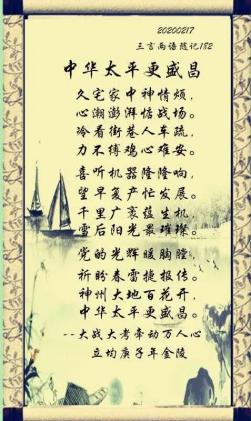 20200217
三言两语随记182
中华太平更盛昌
久宅家中神情烦，
心潮澎湃惦战场。
冷看街巷人车疏，
力不缚鸡心难安。
喜听机器隆隆响，
望早复产忙发展。
千里广袤蕴生机，
雪后阳光最璀璨。
党的光辉暖胸膛，
祈盼春雷捷报传。
神州大地百花开，
中华太平更盛昌。
--大战大考牵动万人心
立均庚子年金陵